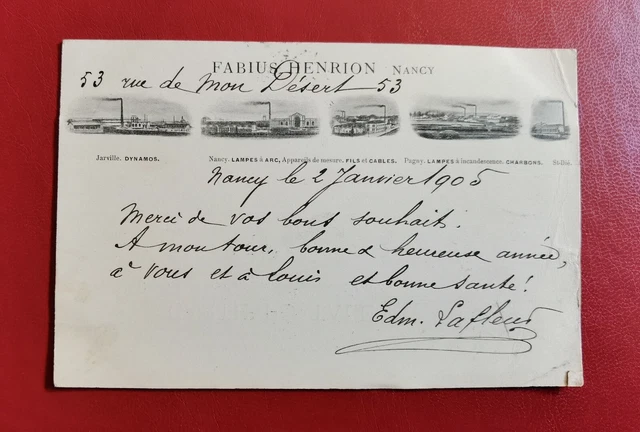 FABIUS HENRION NANCY
53 rue de Mon Désert 53
Jarville. DYNAMOS. Nancy. LAMPES à ARC, Appareils de mesure. FILS et CABLES. Pagny. LAMPES à incandescence. CHARBONS. St-Dié.
Nancy le 2 Janvier 1905
Merci de vos bons souhaits.
A mon tour, bonne & heureuse année,
à vous et à Louis et bonne santé!
Edm. Lafleur